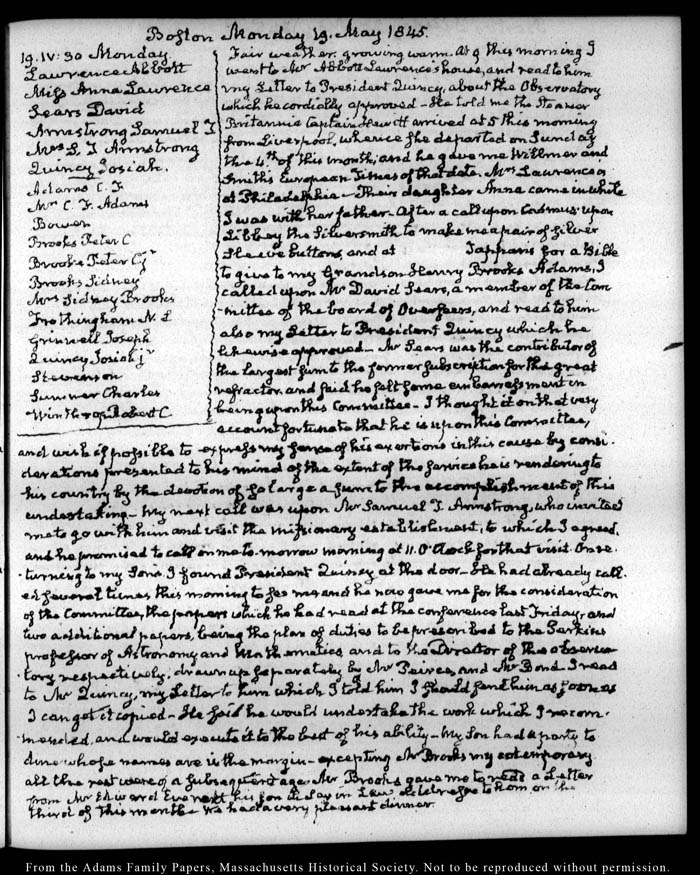 Boston Monday 19. May 1845.
19. IV:30 Monday
Lawrence Abbott
Miss Anna Lawrence
Sears David
Armstrong Samuel T
Mrs S. T Armstrong
Quincy Josiah.
Adams C. F
Mrs C. F. Adams
Bowen
Brooks Peter C
Brooks Peter C jr
Brooks Sidney
Mrs Sidney Brooks
Frothingham N. L
Grinnell Joseph
Quincy Josiah jr
Stevenson
Sumner Charles
Winthrop Robert C
Fair weather growing warm. At 9 this morning I
went to Mr Abbott Lawrence's house, and read to him
my Letter to President Quincy, about the Observatory
which he cordially approved — He told me the Steamer
Britannia Captain Hewitt arrived at 5 this morning
from Liverpool, whence she departed on Sunday
the 4th of this month; and he gave me Willmer and
Smith's European Times of that date. Mrs Lawrence is
at Philadelphia — Their daughter Anna came in while
I was with her father — After a call upon upon
Libbey the Silversmith to make me a pair of Silver
Sleeve buttons, and at Tappan's for a Bible
to give to my Grandson Henry Brooks Adams, I
called upon Mr David Sears, a member of the Com
-mittee of the board of Overseers, and read to him
also my Letter to President Quincy which he
likewise approved — Mr Sears was the contributor of
the largest sum to the former subscription for the great
refractor, and said he felt some embarrassment in
being upon this Committee — I thought it on that very
account fortunate that he is upon this Committee,
and wish if possible to express my sense of his exertions in this cause by consi-
derations presented to his mind of the extent of the service he is rendering to
his country by the devotion of so large a sum to the accomplishment of this
undertaking — My next call was upon Mr Samuel T. Armstrong, who invited
me to go with him and visit the missionary establishment, to which I agreed,
and he promised to call on me to-morrow morning at 11. O'Clock for that visit. On re-
turning to my Son's, I found President Quincy at the door — He had already call-
ed several times this morning to see me and he now gave me for the consideration
of the Committee, the papers which he had read at the conference last Friday, and
two additional papers, being the plan of duties to be prescribed to the Perkins
professor of Astronomy and Mathematics, and to the Director of the observa-
tory respectively, drawn up separately by Mr Peirce, and Mr Bond. I read
to Mr Quincy, my Letter to him which I told him I should send him as soon as
I can get it copied — He said he would undertake the work which I recom-
-mended, and would execute it to the best of his ability — My Son had a party to
dine whose names are in the margin — excepting Mr Brooks my cotemporary
all the rest were of a subsequent age. Mr Brooks gave me to read a Letter
from Mr Edward Everett his Son in Law to him on the
third of this month. We had a very pleasant dinner.
From the Adams Family Papers, Massachusetts Historical Society. Not to be reproduced without permission.